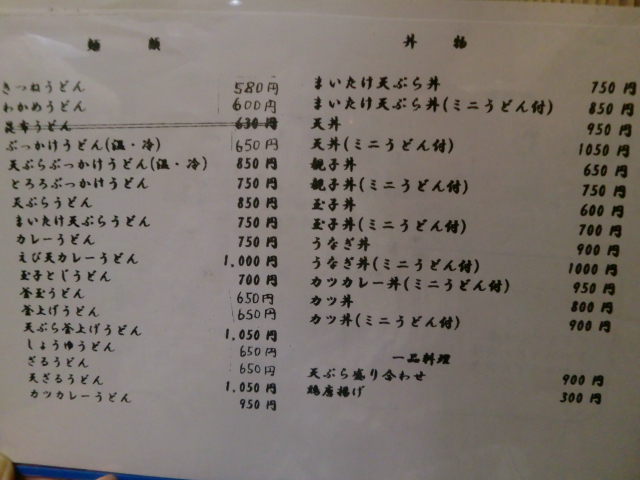 麺 類
きつねうどん 580円
わかめうどん 600円
昆布うどん 630円
ぶっかけうどん(温・冷) 650円
天ぷらぶっかけうどん(温・冷) 850円
とろろぶっかけうどん 750円
天ぷらうどん 850円
まいたけ天ぷらうどん 750円
カレーうどん 750円
えび天カレーうどん 1,000円
玉子とじうどん 700円
釜玉うどん 650円
釜上げうどん 650円
天ぷら釜上げうどん 1,050円
しょうゆうどん 650円
ざるうどん 650円
天ざるうどん 1,050円
カツカレーうどん 950円
丼 物
まいたけ天ぷら丼 750円
まいたけ天ぷら丼(ミニうどん付) 850円
天丼 950円
天丼(ミニうどん付) 1050円
親子丼 650円
親子丼(ミニうどん付) 750円
玉子丼 600円
玉子丼(ミニうどん付) 700円
うなぎ丼 900円
うなぎ丼(ミニうどん付) 1000円
カツカレー丼(ミニうどん付) 950円
カツ丼 800円
カツ丼(ミニうどん付) 900円
一品料理
天ぷら盛り合わせ 900円
鶏唐揚げ 300円